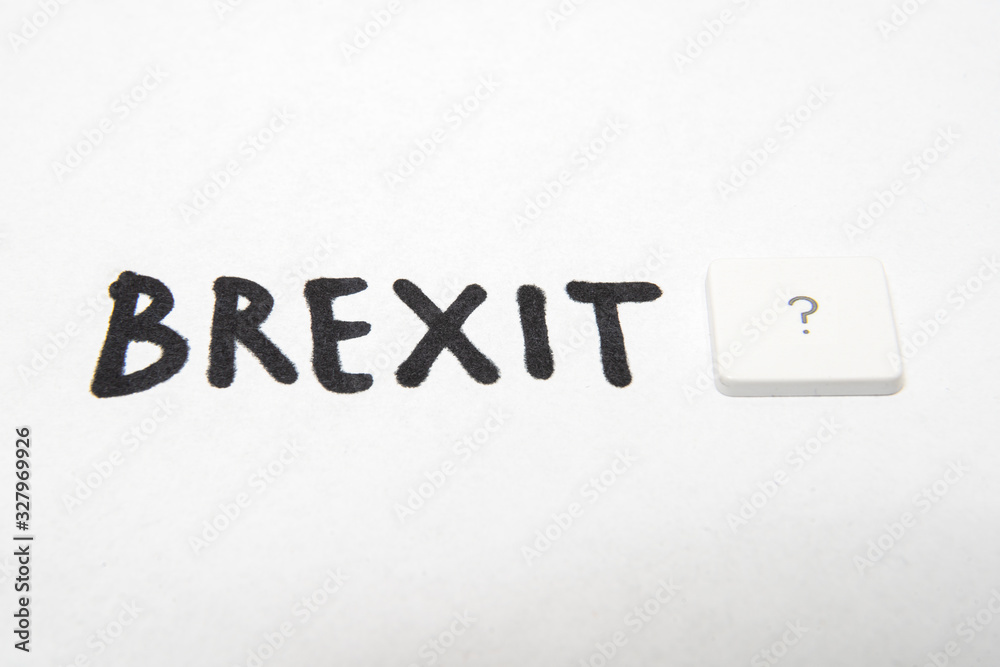 BREXIT ?
Adobe Stock | #327969926
Adobe Stock